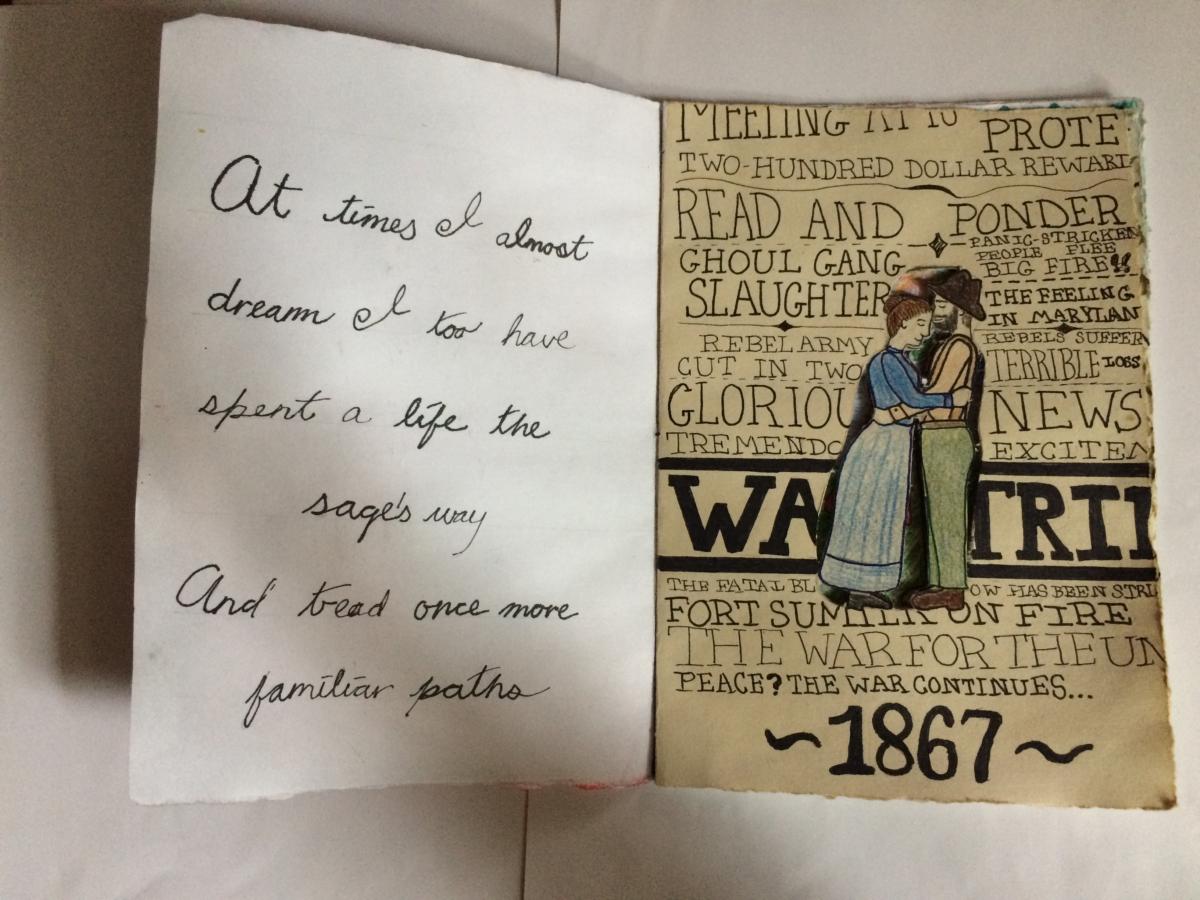 At times I almost
dream I too have
spent a life the
sage's way
And tread once more
familiar paths
MEETING AT 10 PROTE
TWO-HUNDRED DOLLAR REWARD
READ AND PONDER
GHOUL GANG
SLAUGHTER
PANIC-STRICKEN
PEOPLE FLEE
BIG FIRE!!
THE FEELING
IN MARYLAN
REBEL ARMY
CUT IN TWO
REBELS SUFFER
TERRIBLE LOSS
GLORIOU NEWS
TREMENDO EXCITEM
WA TRI
THE FATAL BL OW HAS BEEN STRU
FORT SUMTER ON FIRE
THE WAR FOR THE UN
PEACE? THE WAR CONTINUES...
~1867~